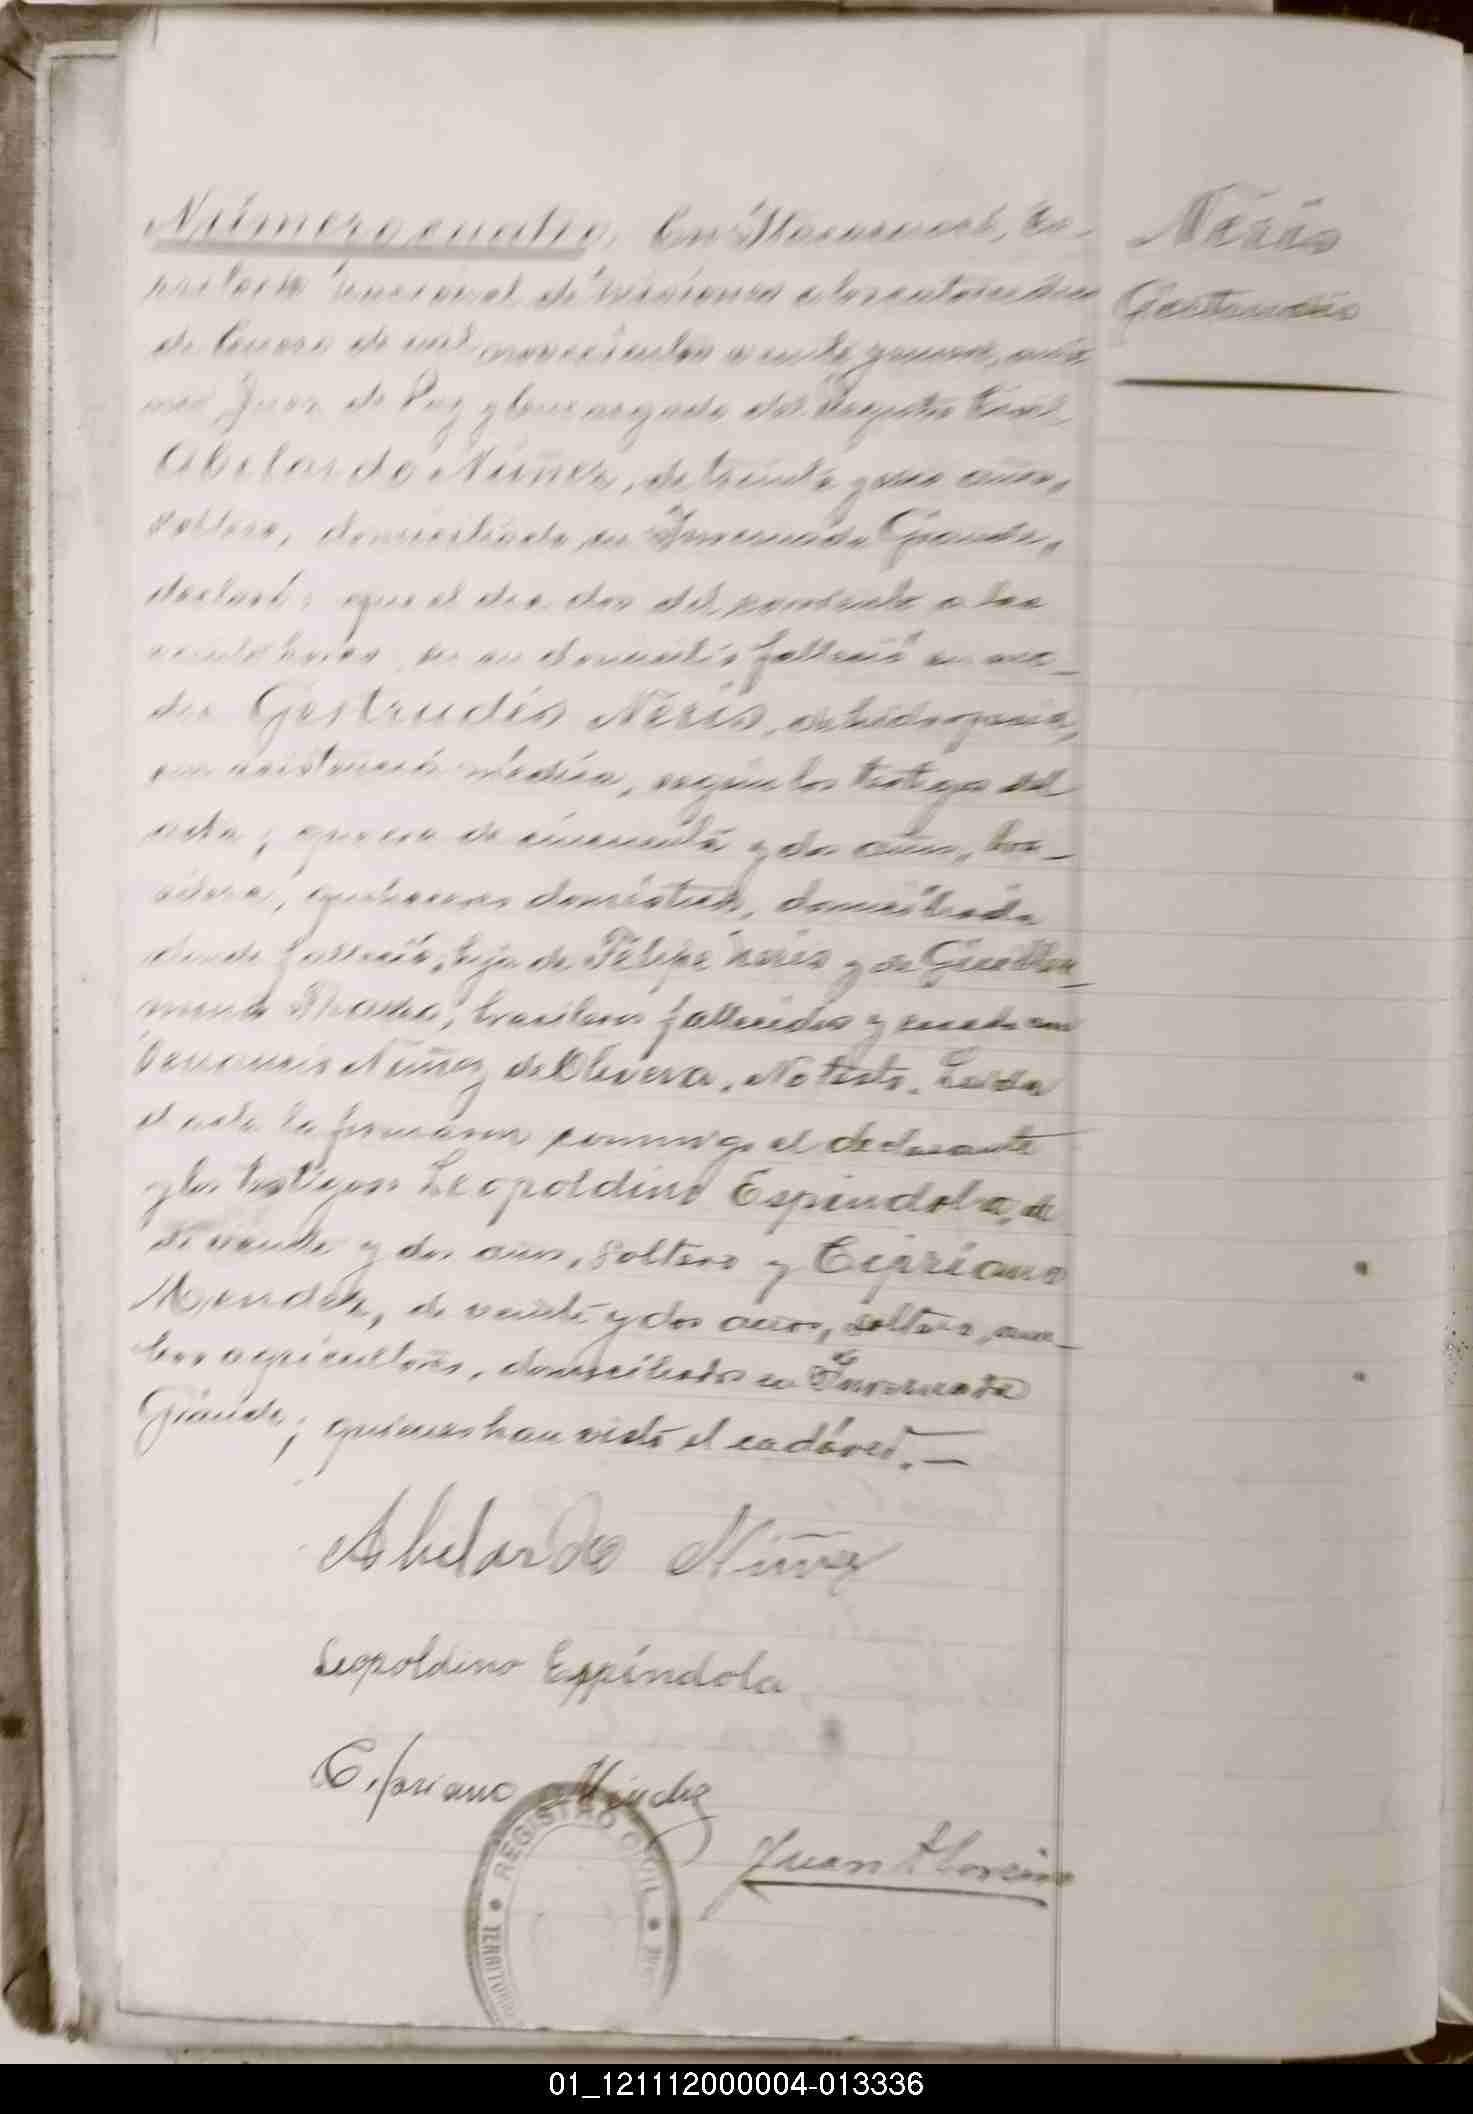 Número cuatro. En Itacaruaré, Te-
Neris
rritorio Nacional de Misiones a los catorce dias
Gertrudis
de Enero de mil novecientos veinte y nueve, ante
mi Juez de Paz y Encargado del Registro Civil
Abelardo Núñez, de treinta y dos años,
soltero, domiciliado en Invernada Grande,
declaró: que el dia dos del corriente a las
veinte horas, en su domicilio falleció su ma-
dre Gertrudis Neris, de hidropesia,
sin asistencia médica, según los testigos del
acta; que era de cincuenta y dos años,
quehaceres domésticos, domiciliada
donde falleció, hija de Felipe Neris y de Guiller-
mina brasileros fallecidos y casada con
Venancio Núñez de Olivera. No testó. Leida
el acta la firmaron conmigo el declarante
y los testigos Leopoldino Espindola, de
treinta y dos años, soltero y Cipriano
Mendez, de veinte y dos años, soltero, am-
bos agricultores, domiciliados en Invernada
Grande; quienes han visto el cadáver.—
Abelardo Núñez
Leopoldino Espíndola
Cipriano Méndez
Juan
REGISTRO CIVIL
TERRITORIO
01_121112000004-013336